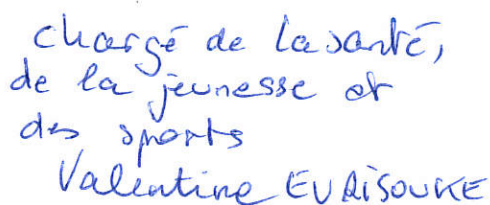 chargé de la santé,
de la jeunesse et
des sports
Valentine EURISOUKE